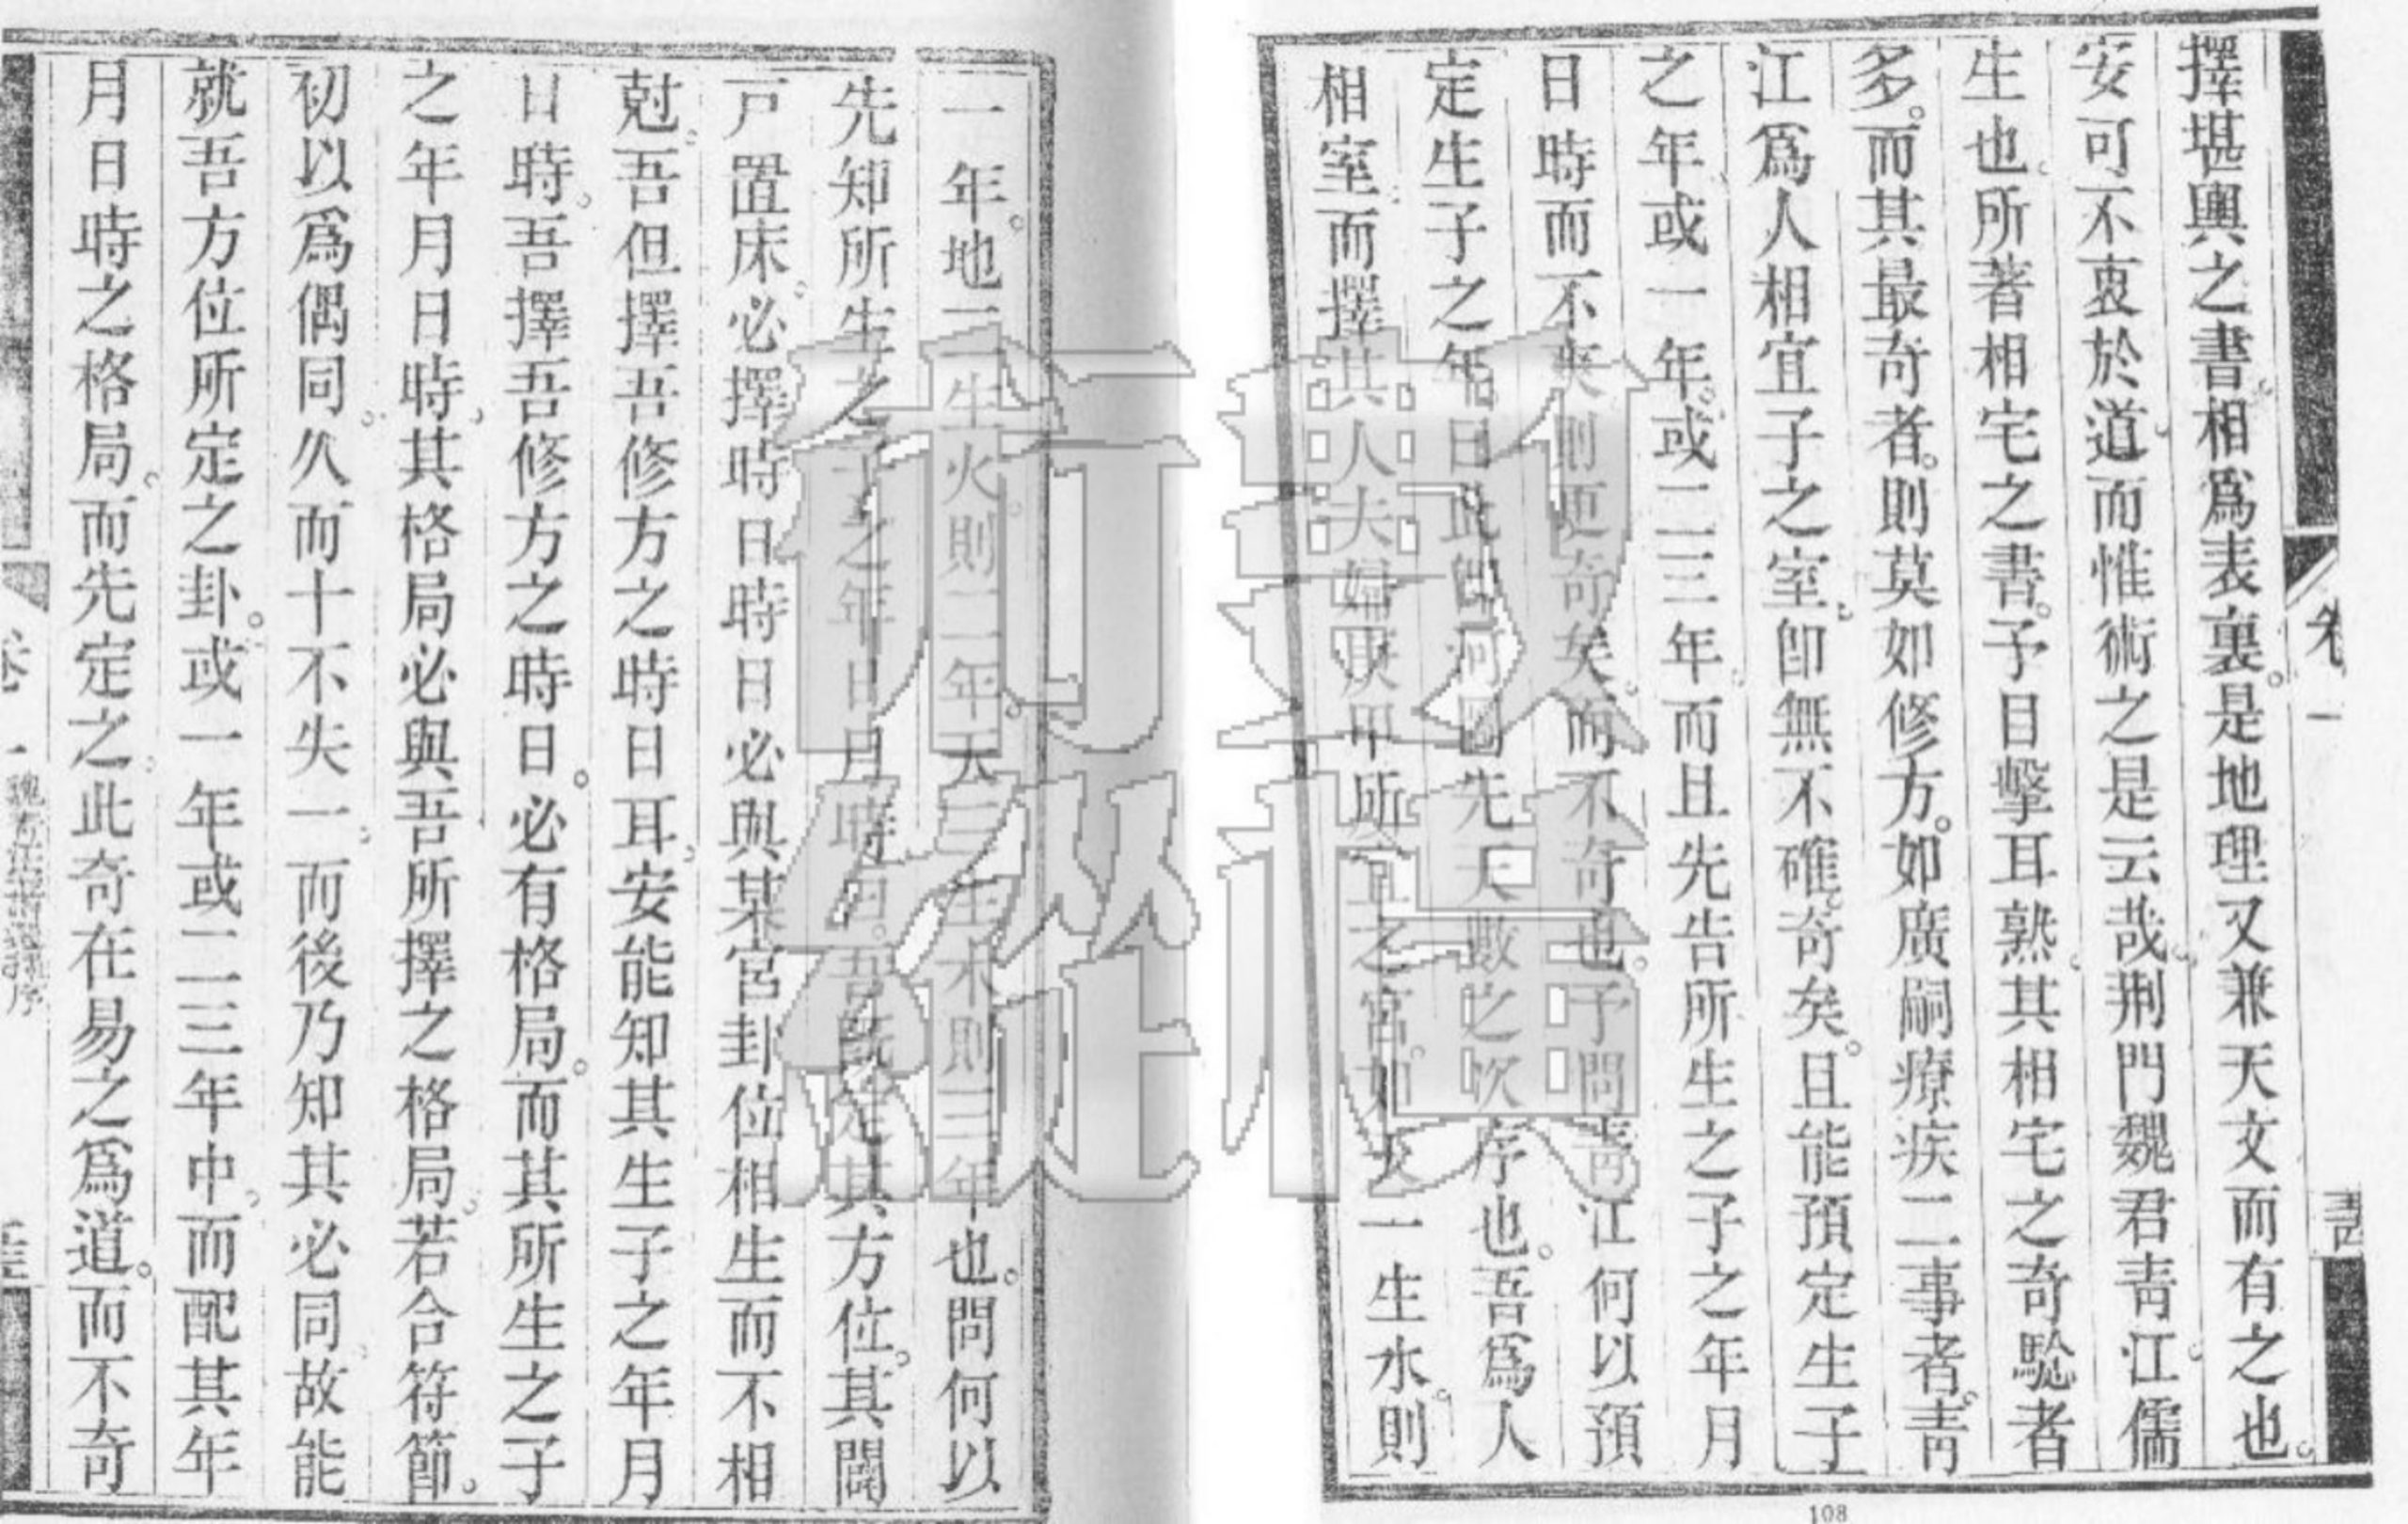 擇堪輿之書。相爲表裏。是地理又兼天文而有之也。
安可不衷於道。而惟術之是云哉。荆門魏君靑江。儒
生也。所著相宅之書。予目擊耳熟。其相宅之奇騐者
多。而其最奇者。則莫如修方。如廣嗣療疾二事者。靑
江爲人相宜子之室。卽無不確。奇矣。且能預定生子
之年。或一年。或二三年。而且先告所生之子之年月
日時而不爽。則更奇矣。而不奇也。予問靑江何以預
定生子之年。曰此卽河圖先天數之次序也。吾爲人
相室。而擇其人夫婦庚甲所宜之宮。如天一生水。則
一年。地二生火。則二年。天三生木。則三年也。問何以
先知所生之子之年日月時。曰。吾旣定其方位。其開
戸置床。必擇時日。時日必與某宮卦位相生而不相
尅。吾但擇吾修方之時日耳。安能知其生子之年月
日時。吾擇吾修方之時日。必有格局。而其所生之子
之年月日時。其格局必與吾所擇之格局。若合符節。
初以爲偶同。久而十不失一。而後乃知其必同。故能
就吾方位所定之卦。或一年或二三年中。而配其年
月日時之格局。而先定之。此奇在易之爲道。而不奇
卷一
108